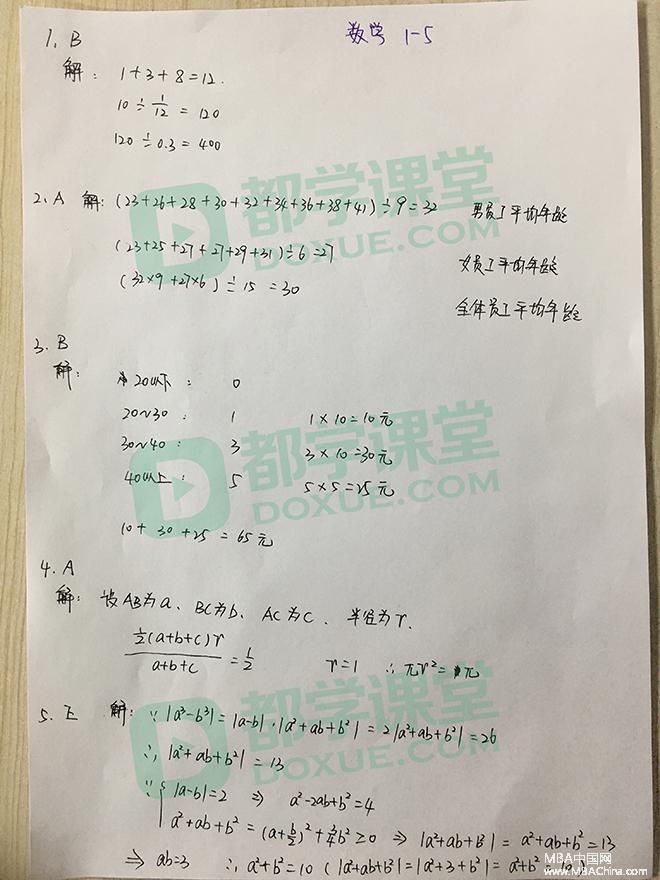 数学 1-5
1. B
解: 1+3+8=12.
10 ÷ 1/12 = 120
120 ÷ 0.3 = 400
2. A 解: (23+26+28+30+32+34+36+38+41)÷9=32 男员工平均年龄
(23+25+27+27+29+31)÷6=27 女员工平均年龄
(32×9+27×6)÷15=30 全体员工平均年龄
3. B
解: 20以下: 0
20~30: 1 1×10=10元
30~40: 3 3×10=30元
40以上: 5 5×5=25元
10+30+25=65元
4. A
解: 设AB为a、BC为b、AC为c、半径为r.
½(a+b+c)r / a+b+c = 1/2 r=1 ∴ πr²=π
5. E 解: ∵ |a³-b³|=|a-b|·|a²+ab+b²|=2|a²+ab+b²|=26
∴ |a²+ab+b²|=13
∵ { |a-b|=2 ⇒ a²-2ab+b²=4
a²+ab+b²=(a+b/2)²+¾b²≥0 ⇒ |a²+ab+b²|=a²+ab+b²=13
⇒ ab=3 ∴ a²+b²=10 (|a²+ab+b²|=|a²+3+b²|=a²+b²
都学课堂
DOXUE.COM
都学课堂
DOXUE.COM
都学课堂
DOXUE.COM
MBA中国网
www.MBAChina.com